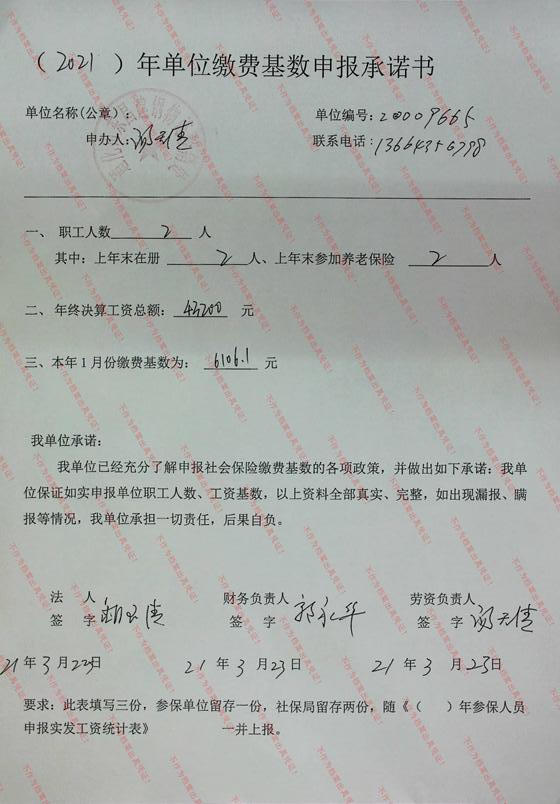 （2021）年单位缴费基数申报承诺书
单位名称(公章)： 单位编号：20009665
申办人： 联系电话：
一、 职工人数 2 人
其中：上年末在册 2 人、上年末参加养老保险 2 人
二、年终决算工资总额： 43200 元
三、本年1月份缴费基数为： 6106.1 元
我单位承诺：
我单位已经充分了解申报社会保险缴费基数的各项政策，并做出如下承诺：我单
位保证如实申报单位职工人数、工资基数，以上资料全部真实、完整，如出现漏报、瞒
报等情况，我单位承担一切责任，后果自负。
法 人 财务负责人 劳资负责人
签 字 签 字 郭永华 签 字
21年3月23日 21年3月23日 21年3月23日
要求：此表填写三份，参保单位留存一份，社保局留存两份，随《（ ）年参保人员
申报实发工资统计表》 一并上报。